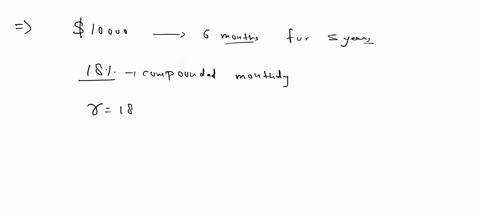 => $10000 → 6 months for 5 years
18% → compounded monthly
r = 18